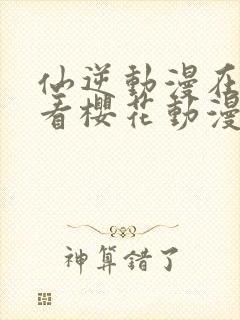 仙逆動漫在
看櫻花動漫
神算錯了